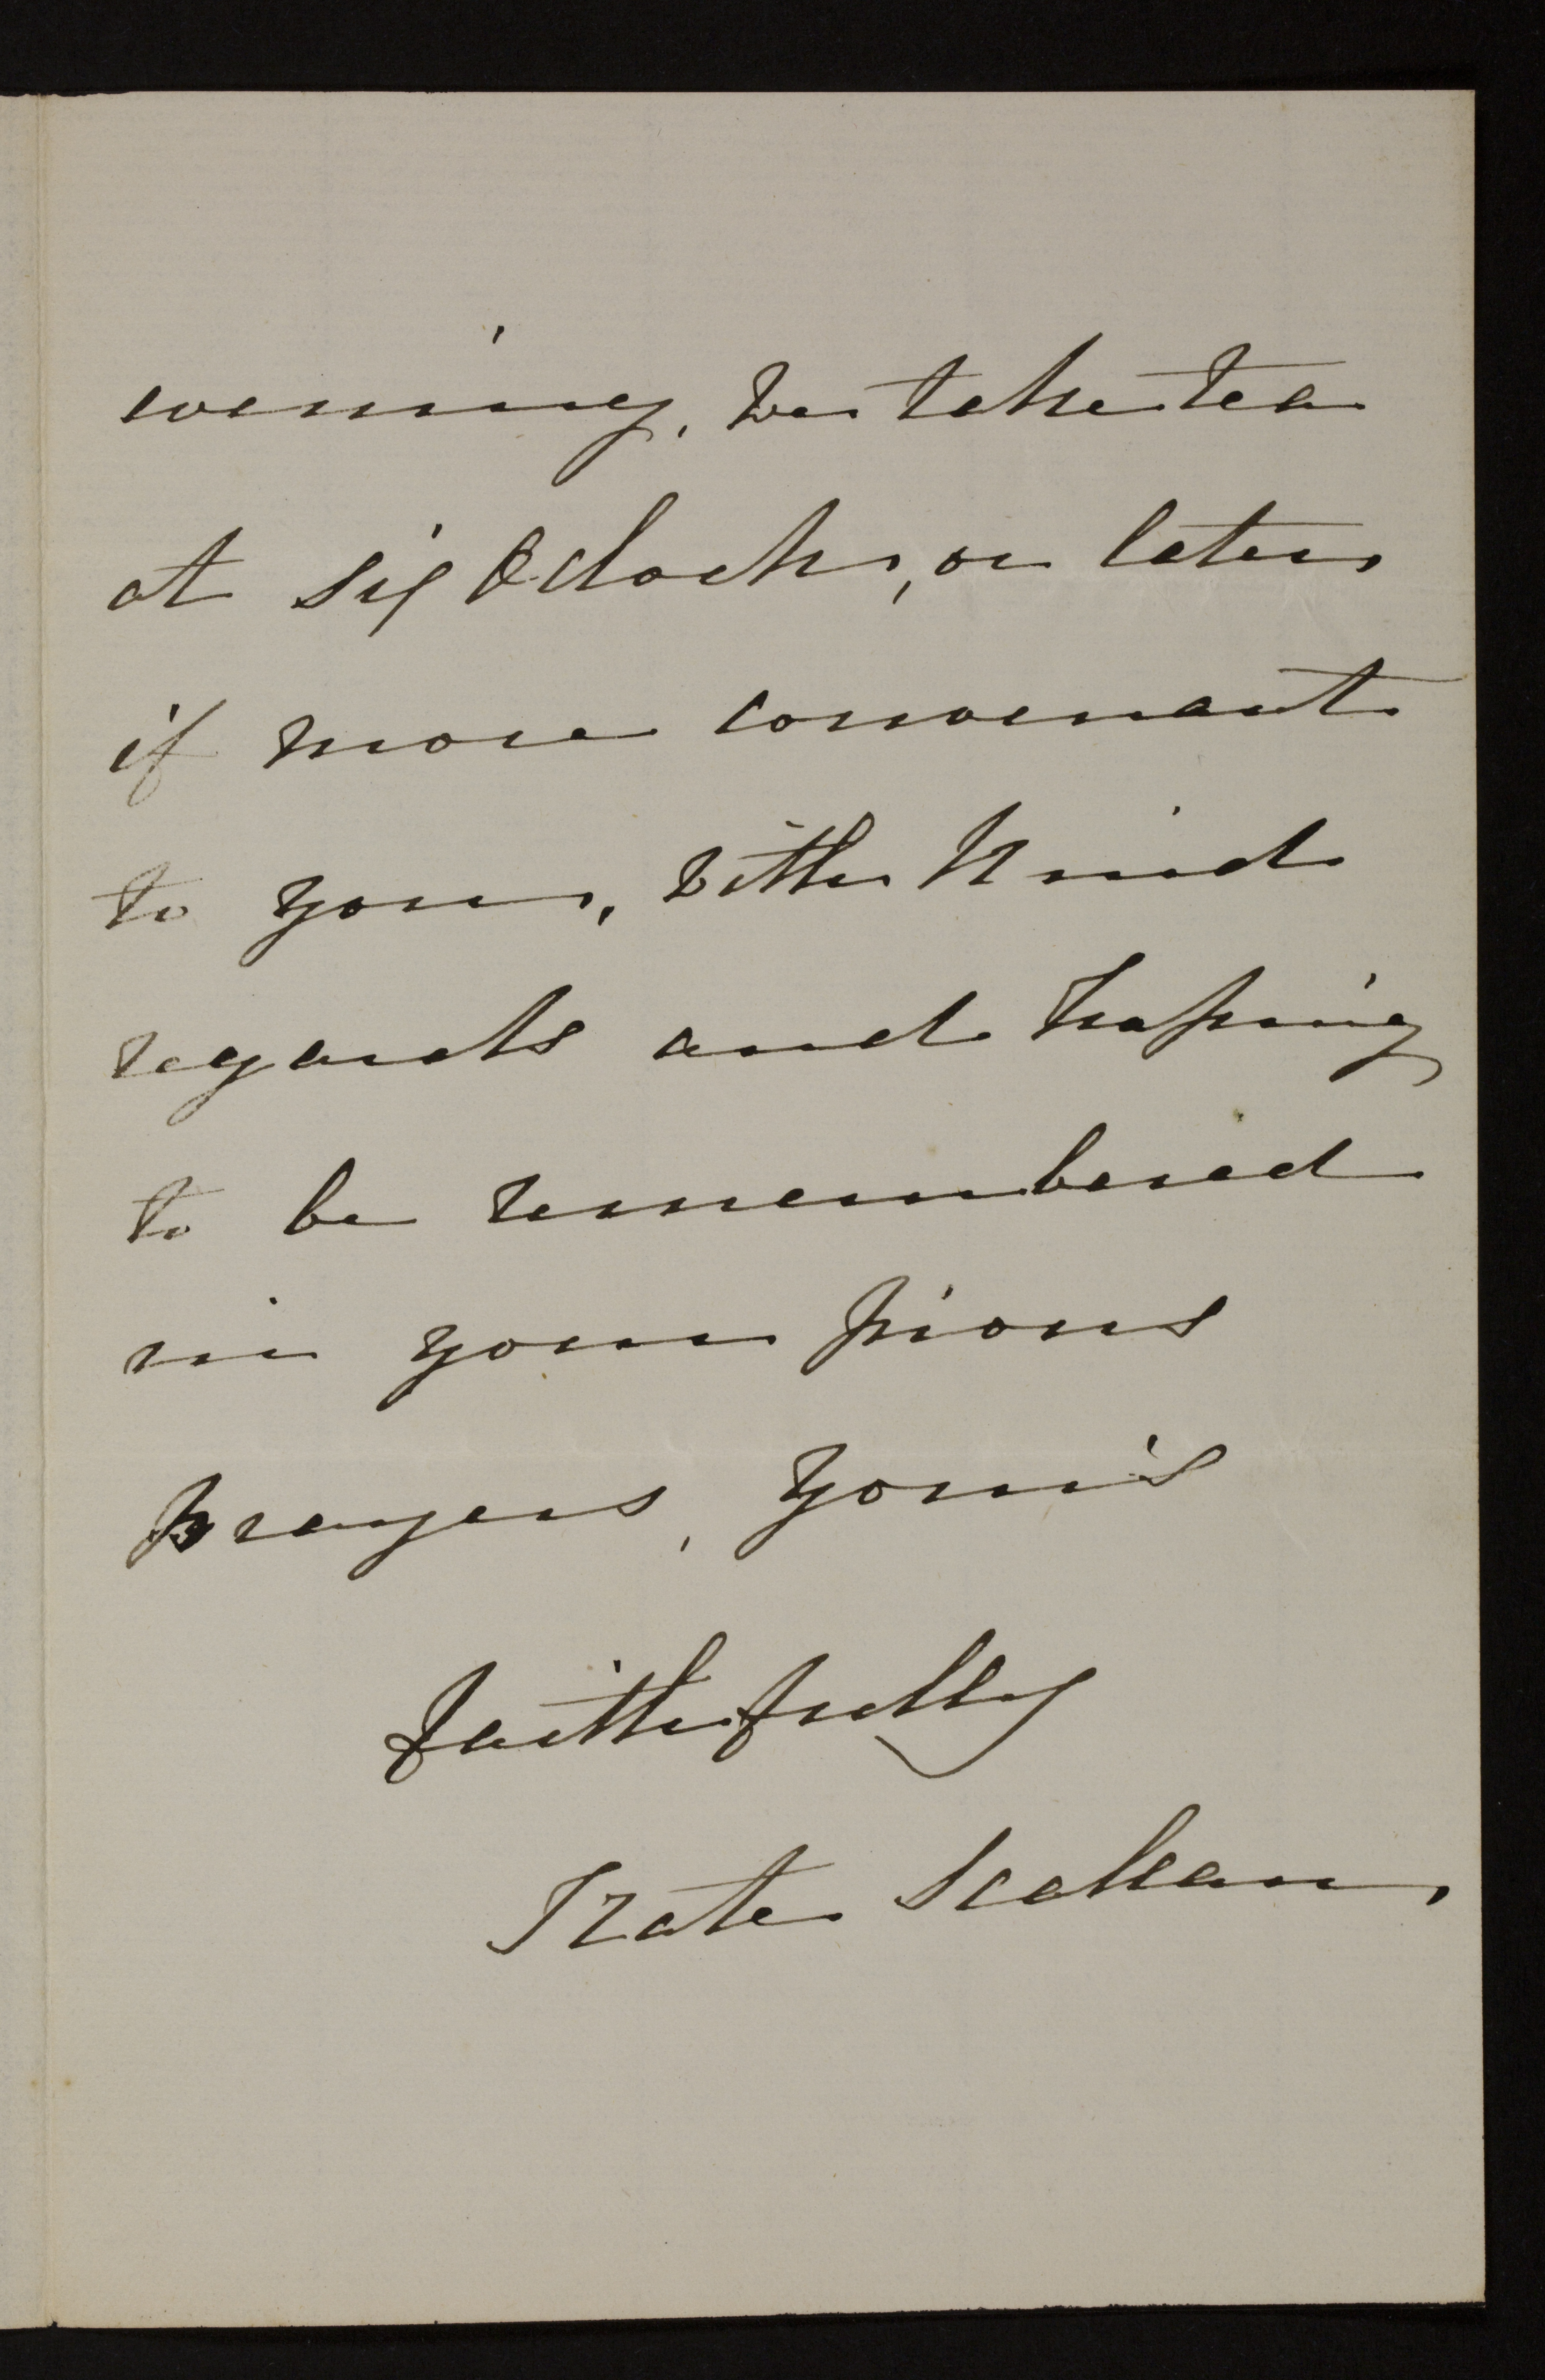 evening, we take tea
at six Oclock, or later
if more convenant
to you, with kind
regards and hoping
to be remembered
in your pious
prayers, your's
faithfully
Kate Scallan,